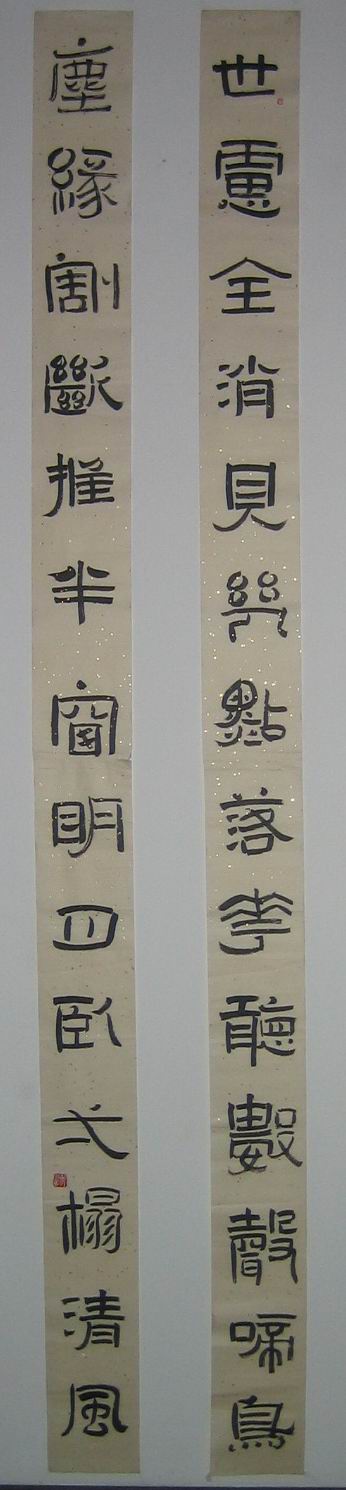 世慮全消見幾點落華聽數聲啼鳥
塵緣割斷推半窗明月臥弌榻清風